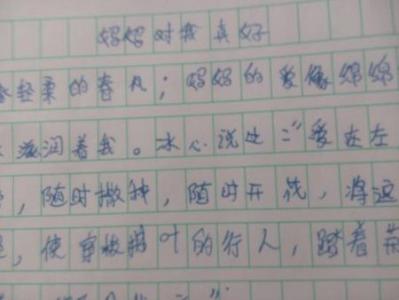 妈妈对我真好
轻柔的春风；妈妈的爱像绵绵
滋润着我。冰心说过：“爱在左
，随时撒种，随时开花，将这
，使穿枝拂叶的行人，踏着荆